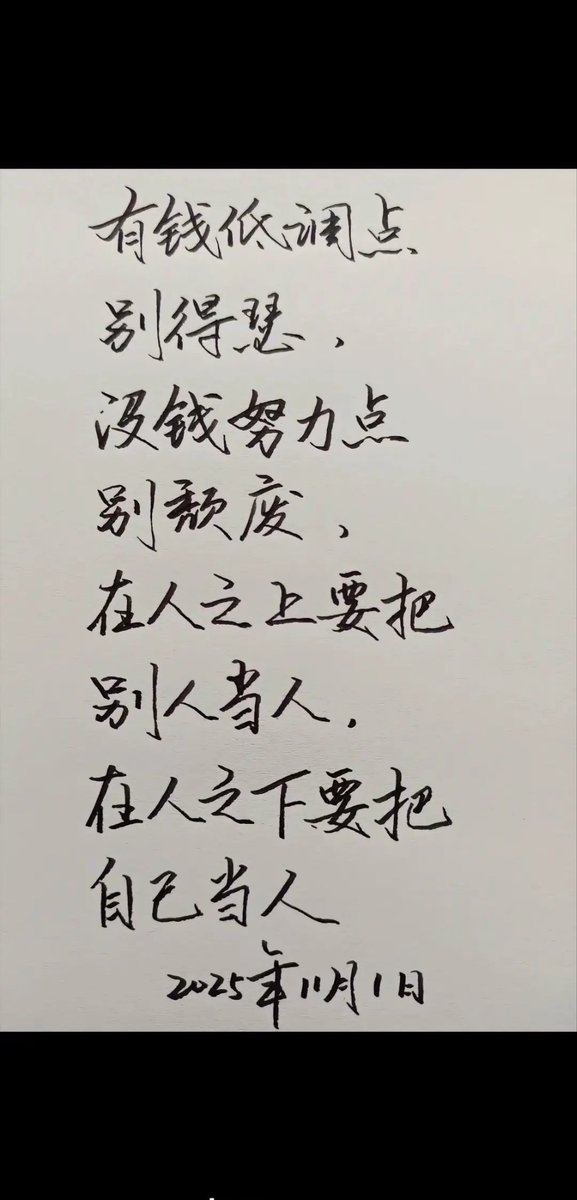 有钱低调点
别得瑟，
没钱努力点
别颓废，
在人之上要把
别人当人，
在人之下要把
自己当人
2025年11月1日